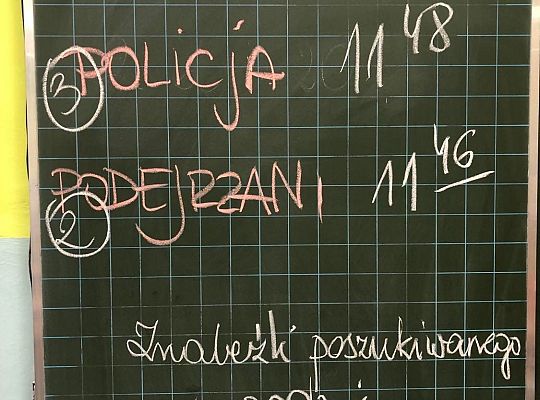 ③ POLICJA 11 48
② PODEJRZANI 11 46
Znaleźli poszukiwanego